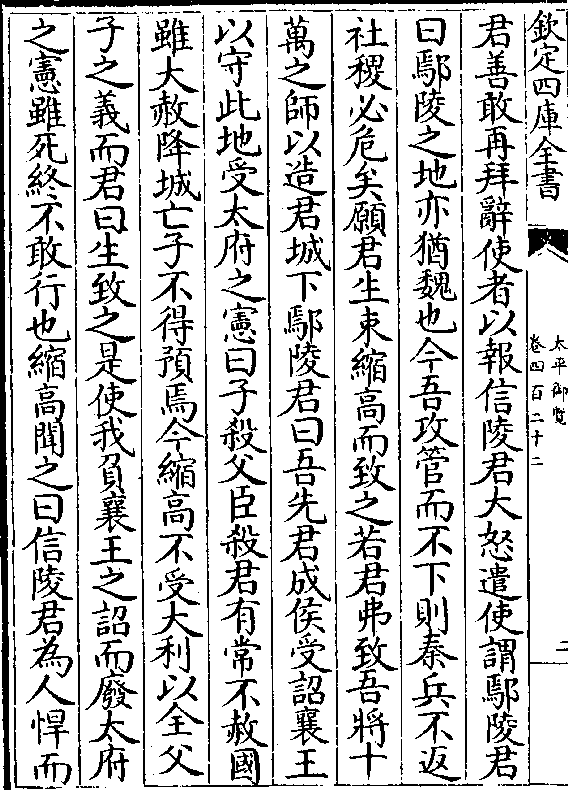 欽定四庫全書
太平御覽
卷四百二十二
二
君善敢再拜辭使者以報信陵君大怒遣使謂鄢陵君
曰鄢陵之地亦猶魏也今吾攻管而不下則秦兵不返
社稷必危矣願君生束縮高而致之若君弗致吾將十
萬之師以造君城下鄢陵君曰吾先君成侯受詔襄王
以守此地受太府之憲曰子殺父臣殺君有常不赦國
雖大赦降城亡子不得預焉今縮高不受大利以全父
子之義而君曰生致之是使我負襄王之詔而廢太府
之憲雖死終不敢行也縮高聞之曰信陵君為人悍而